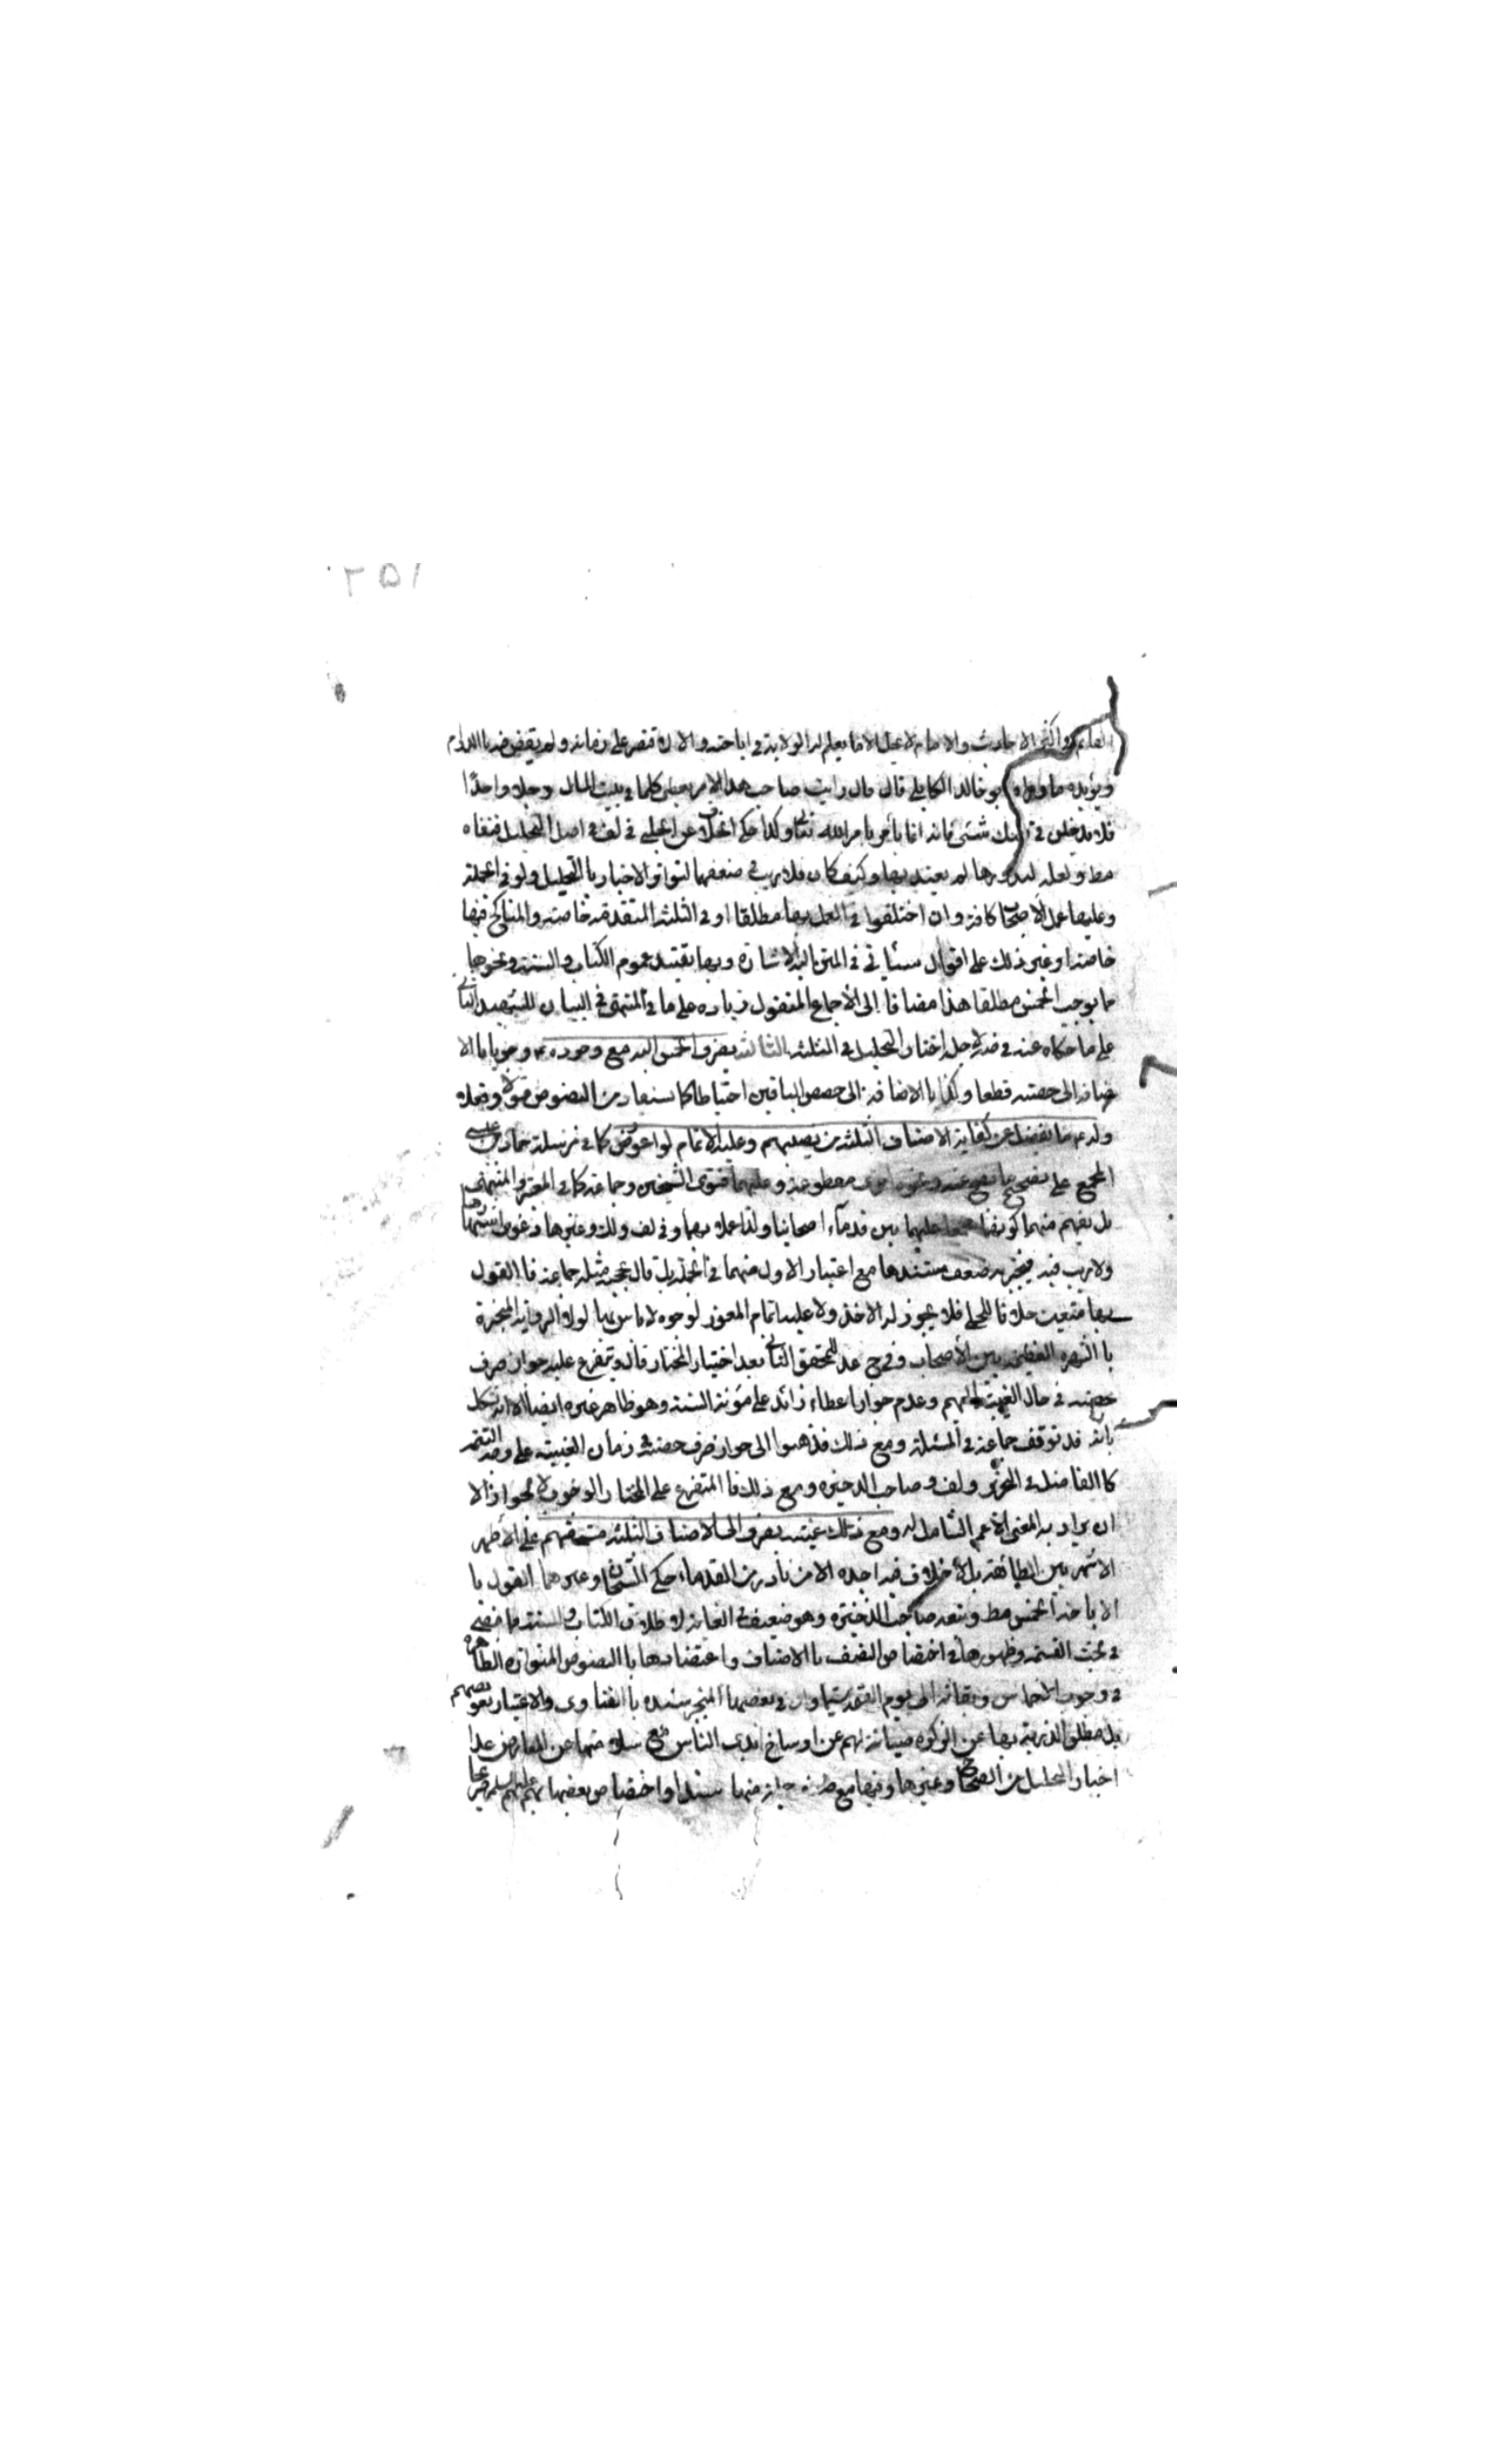 ٢٥١
العلماء واكثر الاحاديث والامام لا يحل الا ما يعلم له الولاية في اباحته والا لاقتصر على زمانه ولم يقض ضد بالدوام
ويؤيده ما رواه ابو خالد الكابلي قال قال رايت صاحب هذا الامر يعطي كلما في بيت المال رجلا واحدا
فلا يدخلن في قلبك شئ فانه انما يأمر بامر الله تع وكذا حكي الخلاف عن الحلبي في لف في اصل التحليل فنفاه
مط ولعله لندورها لم يعتد بها وكيف كان فلا ريب في ضعفهما لتواتر الاخبار بالتحليل ولو في الجملة
وعليها عمل الاصحاب كافة وان اختلفوا في العمل بها مطلقا او في الثلثة المتقدمة خاصة والمناكح فيها
خاصة او غير ذلك على اقوال سيأتي في المتن اليها الاشارة وبها يقيد عموم الكتاب والسنة ونحوهما
مما يوجب الخمس مطلقا هذا مضافا الى الاجماع المنقول زيادة على ما في المنتهى في البيان للشهيد الثاني
على ما حكاه عنه في ضه لاجله اختار التحليل في الثلثة الثالث يصرف الخمس اليه مع وجوده ع وجوبا بالا
ضافة الى حصته قطعا وكذا بالاضافة الى حصص الباقين احتياطا كما يستفاد من النصوص قولا وفعلا
وله ع ما يفضل عن كفاية الاصناف الثلثة من نصيبهم وعليه الاتمام لو اعوز كما في مرسلة حماد بن عيسى
المجمع على تصحيح ما يصح عنه ونحوه اخرى مقطوعة وعليهما فتوى الشيخين وجماعة كما في المعتبر والمنتهى
بل يفهم منهما كونها مجمعا عليهما بين قدماء اصحابنا ولذا عملا بهما وفي لف ولك وغيرها دعوى شهرتها
ولا ريب فيه فينجبر به ضعف مستندها مع اعتبار الاول منهما في الجملة بل قال بحجية مثله جماعة فالقول
بها متعين خلافا للحلي فلا يجوز له الاخذ ولا عليه اتمام المعوز لوجوه لا باس بها لولا الرواية المنجبرة
بالشهرة العظيمة بين الاصحاب وفي ح عد للمحقق الثاني بعد اختيار المختار قال ويتفرع عليه جواز صرف
حصته في حال الغيبة اليهم وعدم جواز اعطاء زائد على مؤنة السنة وهو ظاهر غيره ايضا الا انه يشكل
بانه قد توقف جماعة في المسئلة ومع ذلك فذهبوا الى جواز صرف حصته في زمان الغيبة على وجه التتمة
كالفاضل في التحرير ولف وصاحب الذخيرة ومع ذلك فالمتفرع على المختار الوجوب لا الجواز الا
ان يراد به المعنى الاعم الشامل له ومع ذلك غيبته يصرف الى الاصناف الثلثة مستحقهم على الاظهر
الاشهر بين الطائفة بل لا خلاف فيه اجده الا من نادر من القدماء حكى الشيخان وغيرهما القول با
الاباحة الخمس مط وتبعه صاحب الذخيرة وهو ضعيف في الغاية لاطلاق الكتاب والسنة ما مضى
في بحث القسمة وظهورها في اختصاص النصف بالاصناف واعتضادها بالنصوص المتواترة الظاهرة
في وجوب الاخماس وبقائه الى يوم القيمة سيما وان في بعضها المنجبر سنده بالفتاوى والاعتبار تعويضهم
بل مطلق الذرية بها عن الزكوة صيانة لهم عن اوساخ ايدي الناس مع سلامتها عن المعارض عدا
اخبار التحليل من الصحاح وغيرها وفيها مع منها سندا واختصاص بعضها بهم عليهم السلم صريحا